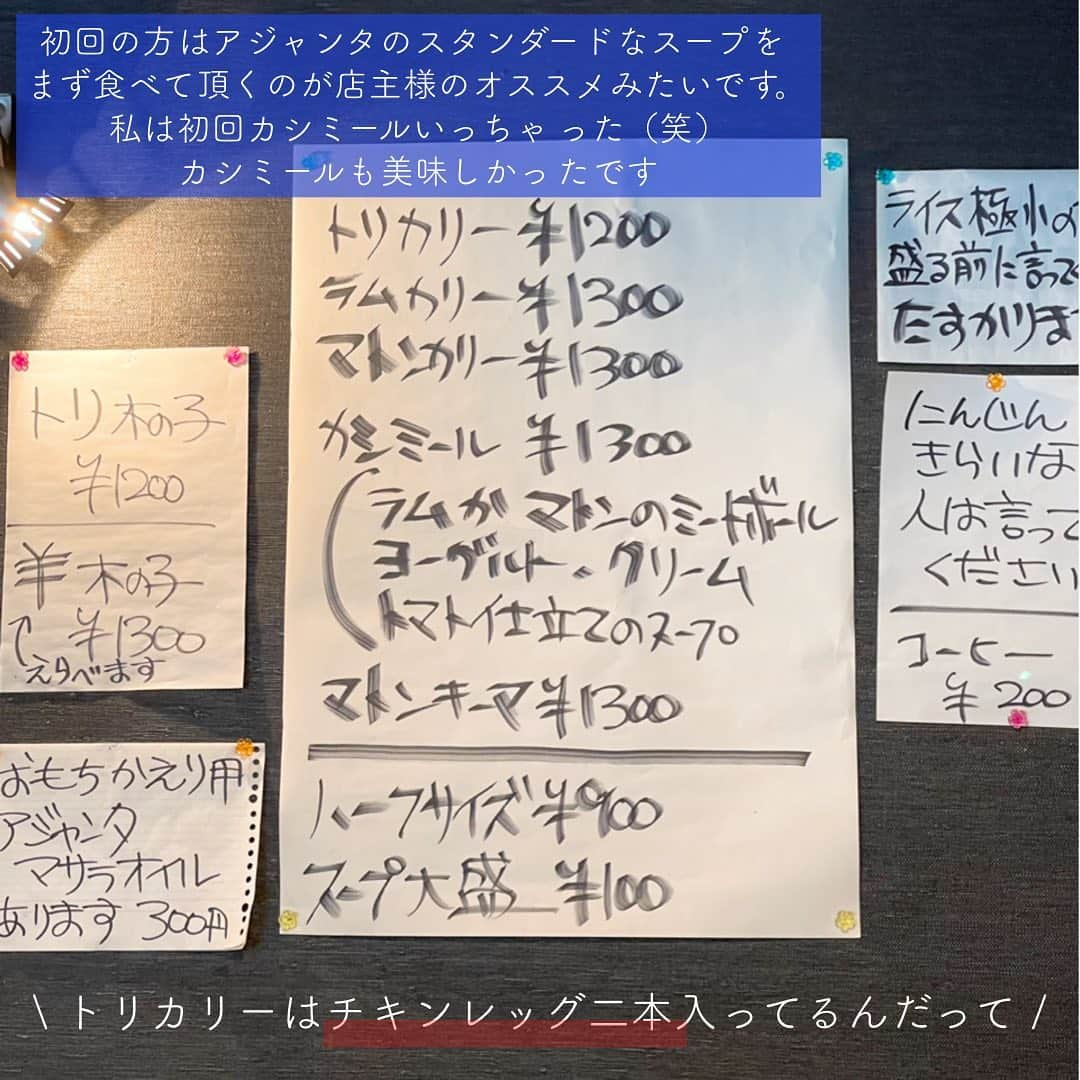 初回の方はアジャンタのスタンダードなスープを
まず食べて頂くのが店主様のオススメみたいです。
私は初回カシミールいっちゃった（笑）
カシミールも美味しかったです
トリカリー ¥1200
ラムカリー ¥1300
マトンカリー ¥1300
カシミール ¥1300
(ラムか マトンのミートボール
ヨーグルト、クリーム
トマト仕立てのスープ
マトンキーマ ¥1300
ハーフサイズ ¥900
スープ大盛 ¥100
トリ木の子
¥1200
羊木の子
¥1300
えらべます
おもちかえり用
アジャンタ
マサラオイル
あります 300円
ライス極小の
盛る前に言って
たすかりま
にんじん
きらいな
人は言って
ください
コーヒー
¥200
\ トリカリーはチキンレッグ二本入ってるんだって /